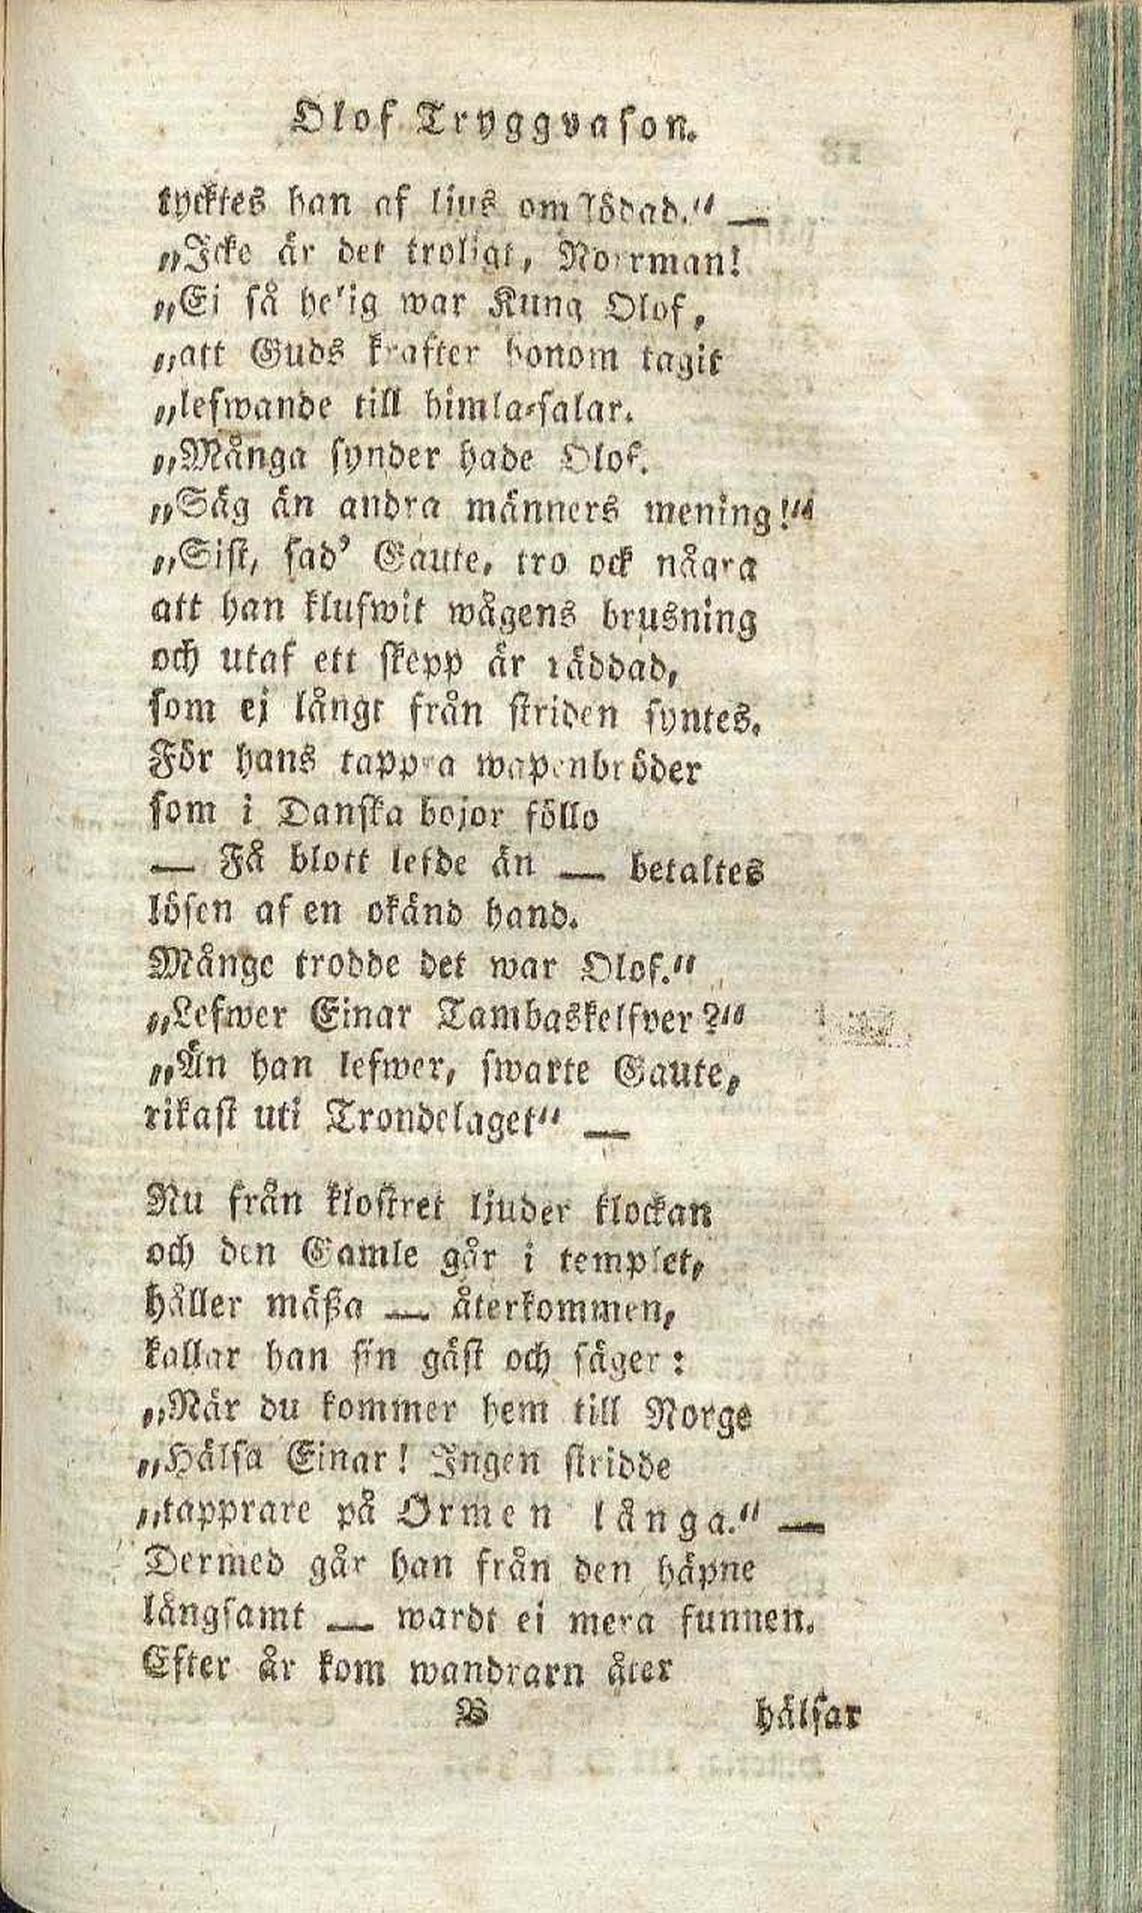 Olof Tryggvason.
tycktes han af ljus omflödad." —
„Icke är det troligt, Norrman!
„Ei så helig war Kung Olof,
„att Guds krafter honom tagit
„lefwande till himla-salar.
„Många synder hade Olof.
„Säg än andra männers mening!"
„Sist, sad' Gaute, tro ock några
att han klufwit wågens brusning
och utaf ett skepp är räddad,
som ej långt från striden syntes.
För hans tappra wapenbröder
som i Danska bojor föllo
— Få blott lefde än — betaltes
lösen af en okänd hand.
Månge trodde det war Olof."
„Lefwer Einar Tambaskelfver?"
„Än han lefwer, swarte Gaute,
rikast uti Trondelaget" —
Nu från klostret ljuder klockan
och den Gamle går i templet,
håller mäßa — återkommen,
kallar han sin gäst och säger:
„När du kommer hem till Norge
„Hälsa Einar! Ingen stridde
„tapprare på Ormen långa." —
Dermed går han från den häpne
långsamt — wardt ei mera funnen.
Efter år kom wandrarn åter
B hälsar